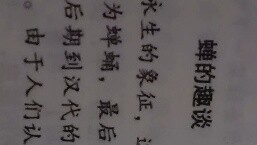 蝉的趣谈
永生的象征，
为蝉蛹，最后
后期到汉代的
。由于人们认